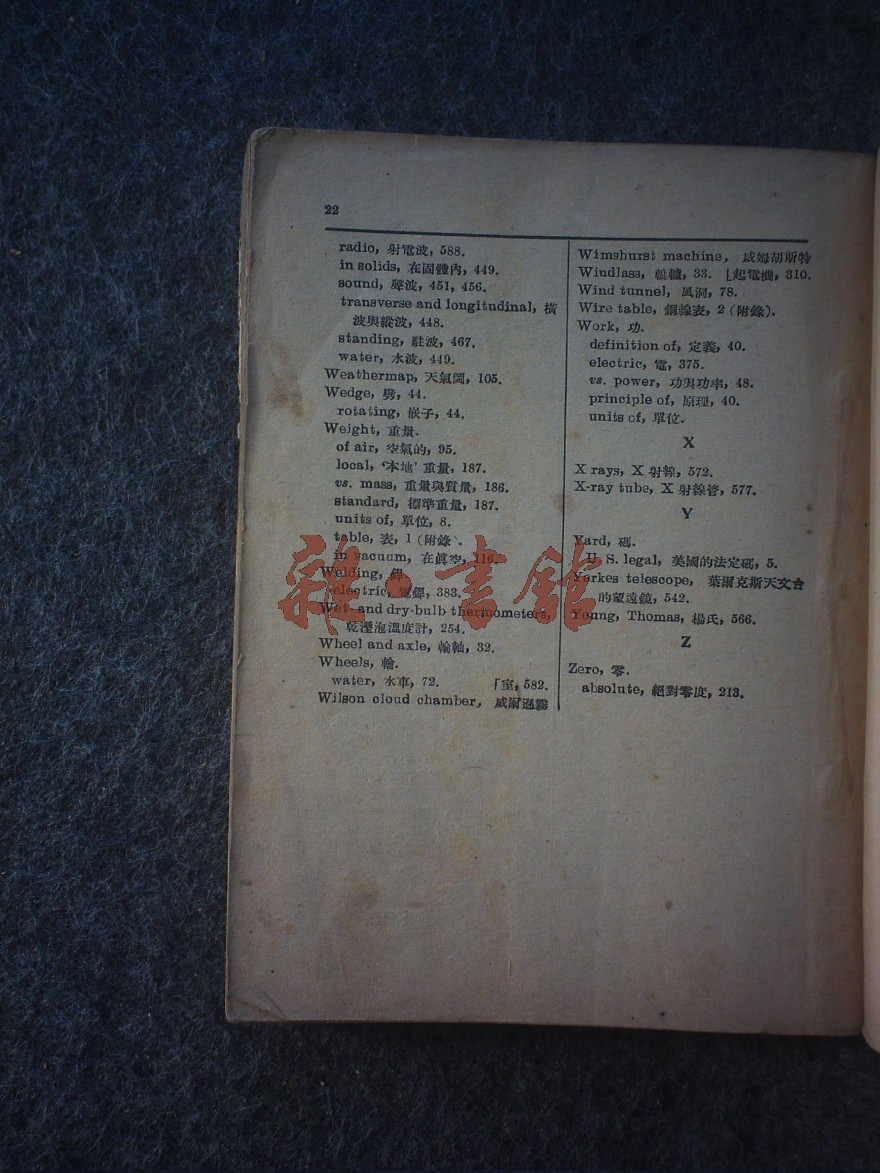 22
radio, 射電波, 588.
in solids, 在固體內, 449.
sound, 聲波, 451, 456.
transverse and longitudinal, 橫
波與縱波, 448.
standing, 駐波, 467.
water, 水波, 449.
Weathermap, 天氣圖, 105.
Wedge, 劈, 44.
rotating, 嵌子, 44.
Weight, 重量.
of air, 空氣的, 95.
local, ‘本地’ 重量, 187.
vs. mass, 重量與質量, 186.
standard, 標準重量, 187.
units of, 單位, 8.
table, 表, 1 (附錄).
in vacuum, 在眞空, 116.
Welding, 銲
electric, 電銲, 383.
Wet- and dry-bulb thermometers,
乾溼泡溫度計, 254.
Wheel and axle, 輪軸, 32.
Wheels, 輪.
water, 水車, 72. 「室, 582.
Wilson cloud chamber, 威爾遜霧
Wimshurst machine, 威姆胡斯特
Windlass, 轆轤, 33. ⌊起電機, 310.
Wind tunnel, 風洞, 78.
Wire table, 銅線表, 2 (附錄).
Work, 功.
definition of, 定義, 40.
electric, 電, 375.
vs. power, 功與功率, 48.
principle of, 原理, 40.
units of, 單位.
X
X rays, X 射線, 572.
X-ray tube, X 射線管, 577.
Y
Yard, 碼.
U. S. legal, 美國的法定碼, 5.
Yerkes telescope, 葉爾克斯天文台
的望遠鏡, 542.
Young, Thomas, 楊氏, 566.
Z
Zero, 零.
absolute, 絕對零度, 213.
雜·書館